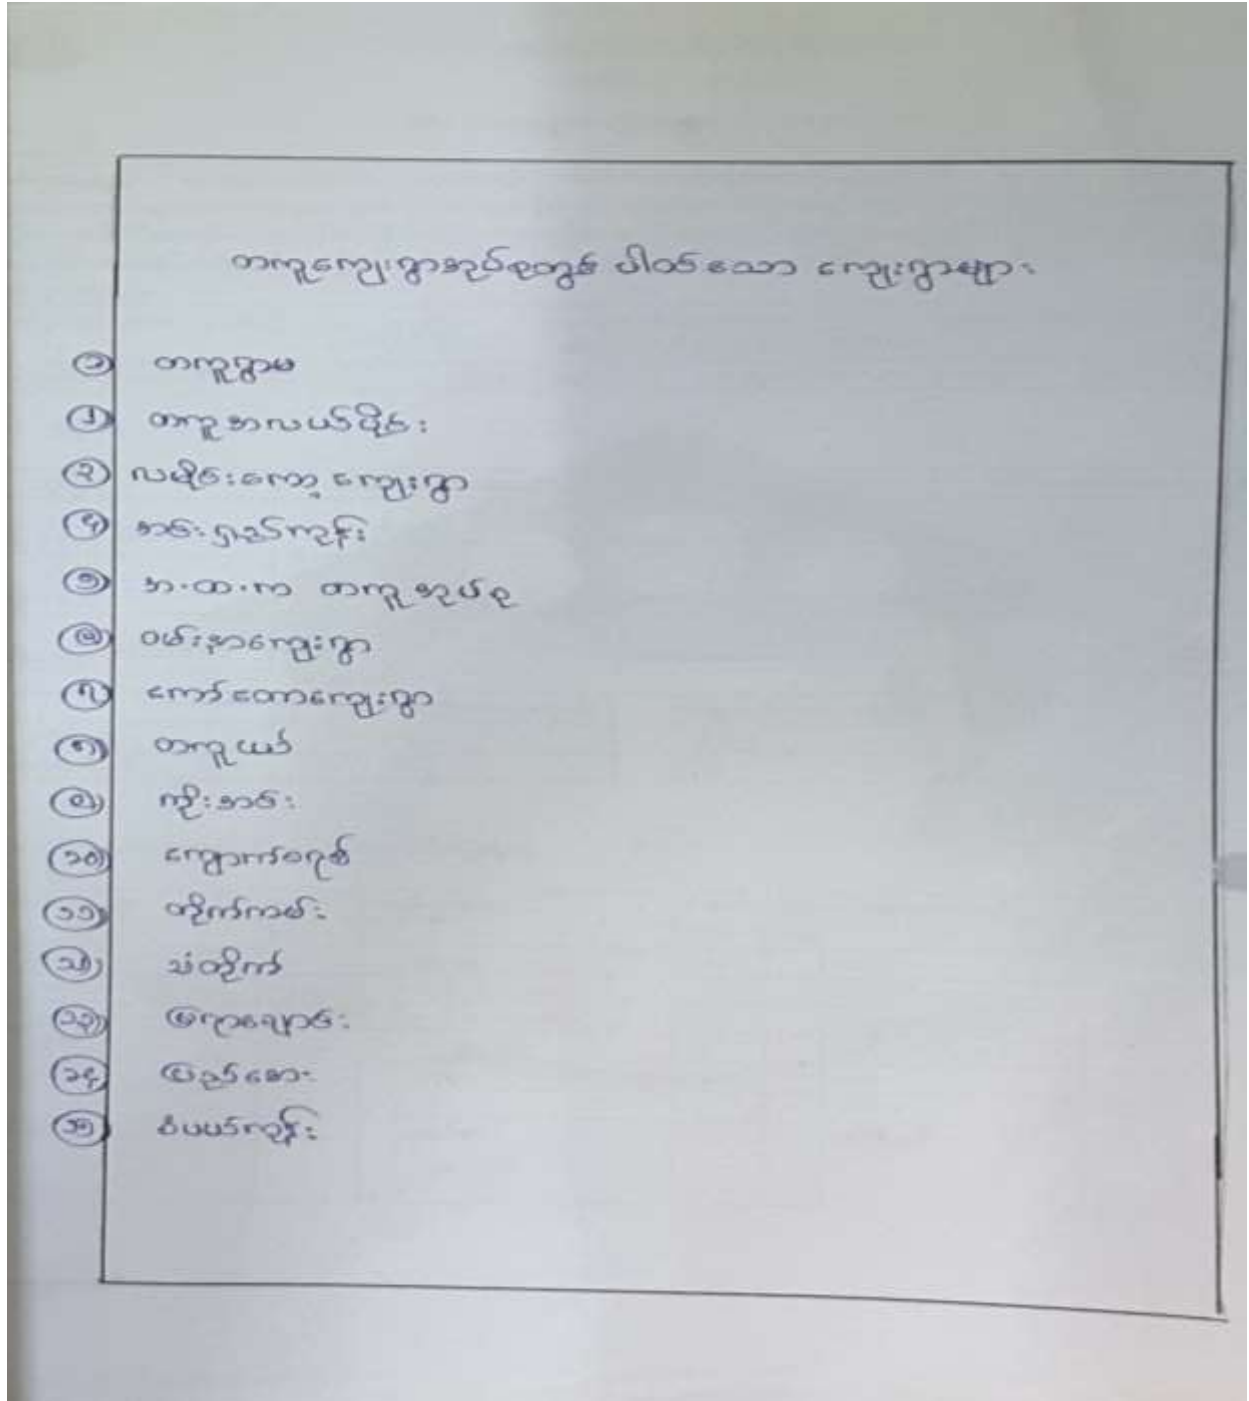 တကူကျေးရွာအုပ်စုတွင် ပါဝင်သော ကျေးရွာများ
၁ တကူရွာမ
၂ တကူအလယ်ပိုင်း
၃ လမိုင်းကော့ ကျေးရွာ
၄ အင်းရှည်ကုန်း
၅ အ.ထ.က တကူအုပ်စု
၆ ဝမ်းနာကျေးရွာ
၇ ကော်တောကျေးရွာ
၈ တကူယော်
၉ ကိုးအင်း
၁၀ ကျောက်စရစ်
၁၁ တိုက်ကမ်း
၁၂ သံတိုက်
၁၃ မြကာချောင်း
၁၄ ပြည်စေား
၁၅ စံပယ်ကုန်း